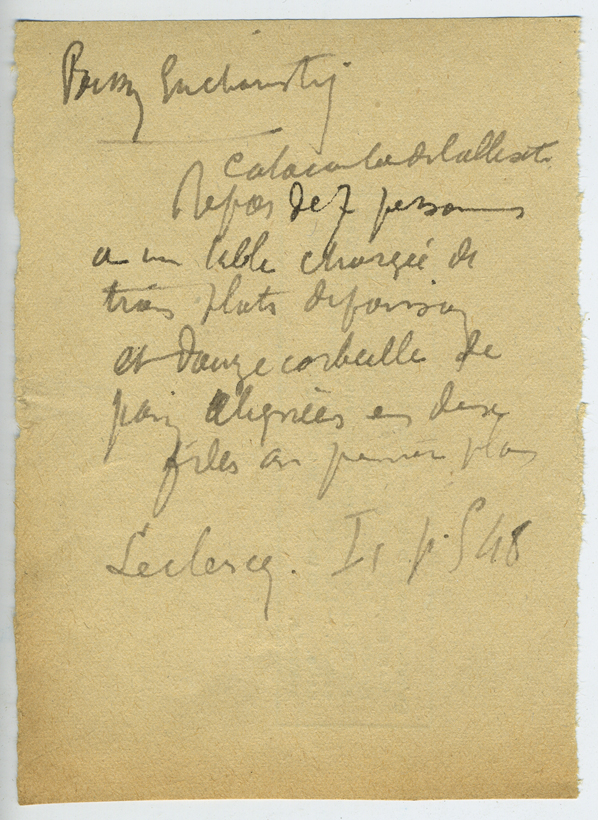 Poisson Eucharistiq
Catacombe de Calliste
Repas de 7 personnes
a un table chargée de
trois plats de poisson
et douze corbeille de
pain alignées en deux
files au premier plan
Leclercq. I, p. 548